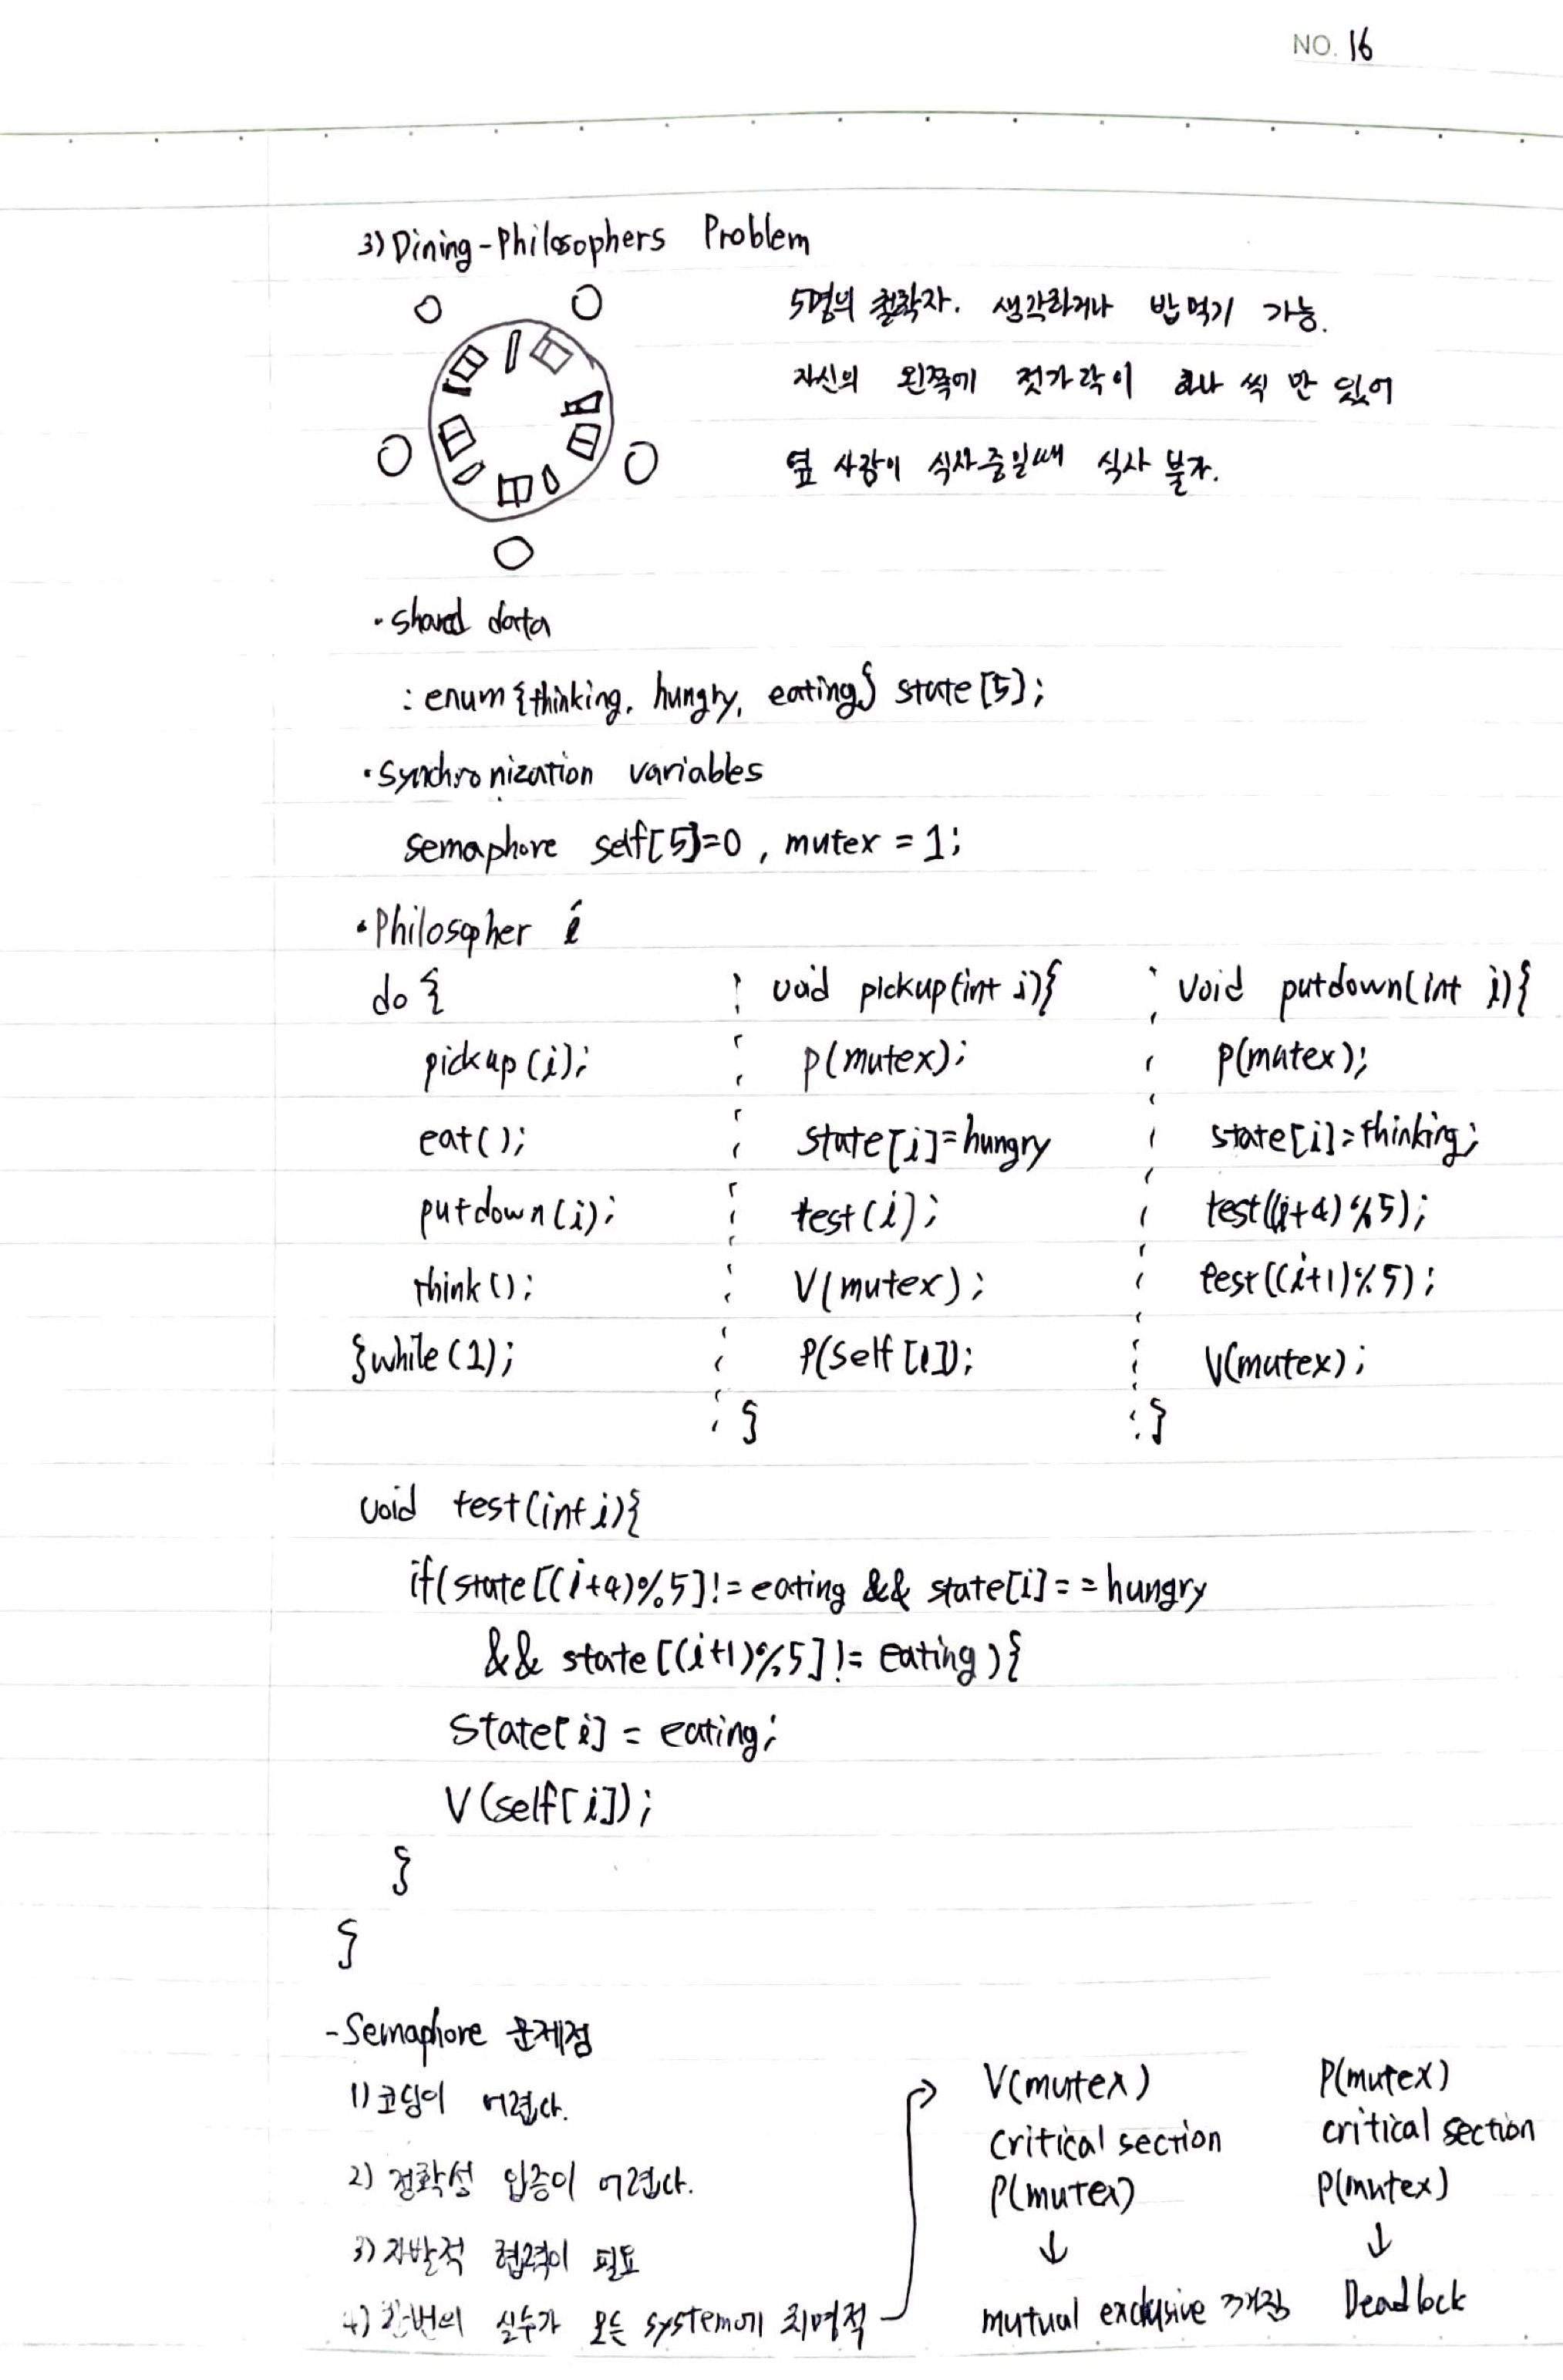 NO. 16
3) Dining-Philosophers Problem
5명의 철학자. 생각하거나 밥먹기 가능.
자신의 왼쪽에 젓가락이 하나 씩 만 있어
옆 사람이 식사중일때 식사 불가.
• shared data
: enum {thinking, hungry, eating} state [5];
• Synchronization variables
semaphore self[5]=0, mutex = 1;
• Philosopher i
do {
pickup(i);
eat();
putdown(i);
think();
}while(1);
void pickup(int i){
P(mutex);
state[i]=hungry
test(i);
V(mutex);
P(self[i]);
}
void putdown(int i){
P(mutex);
state[i]=thinking;
test((i+4)%5);
test((i+1)%5);
V(mutex);
}
void test(int i){
if(state[(i+4)%5]!=eating && state[i]==hungry
&& state[(i+1)%5]!=eating){
state[i] = eating;
V(self[i]);
}
}
- Semaphore 문제점
1) 코딩이 어렵다.
2) 정확성 입증이 어렵다.
3) 자발적 협력이 필요
4) 한번의 실수가 모든 system에 치명적
V(mutex)
critical section
P(mutex)
↓
mutual exclusive 깨짐
P(mutex)
critical section
P(mutex)
↓
Deadlock